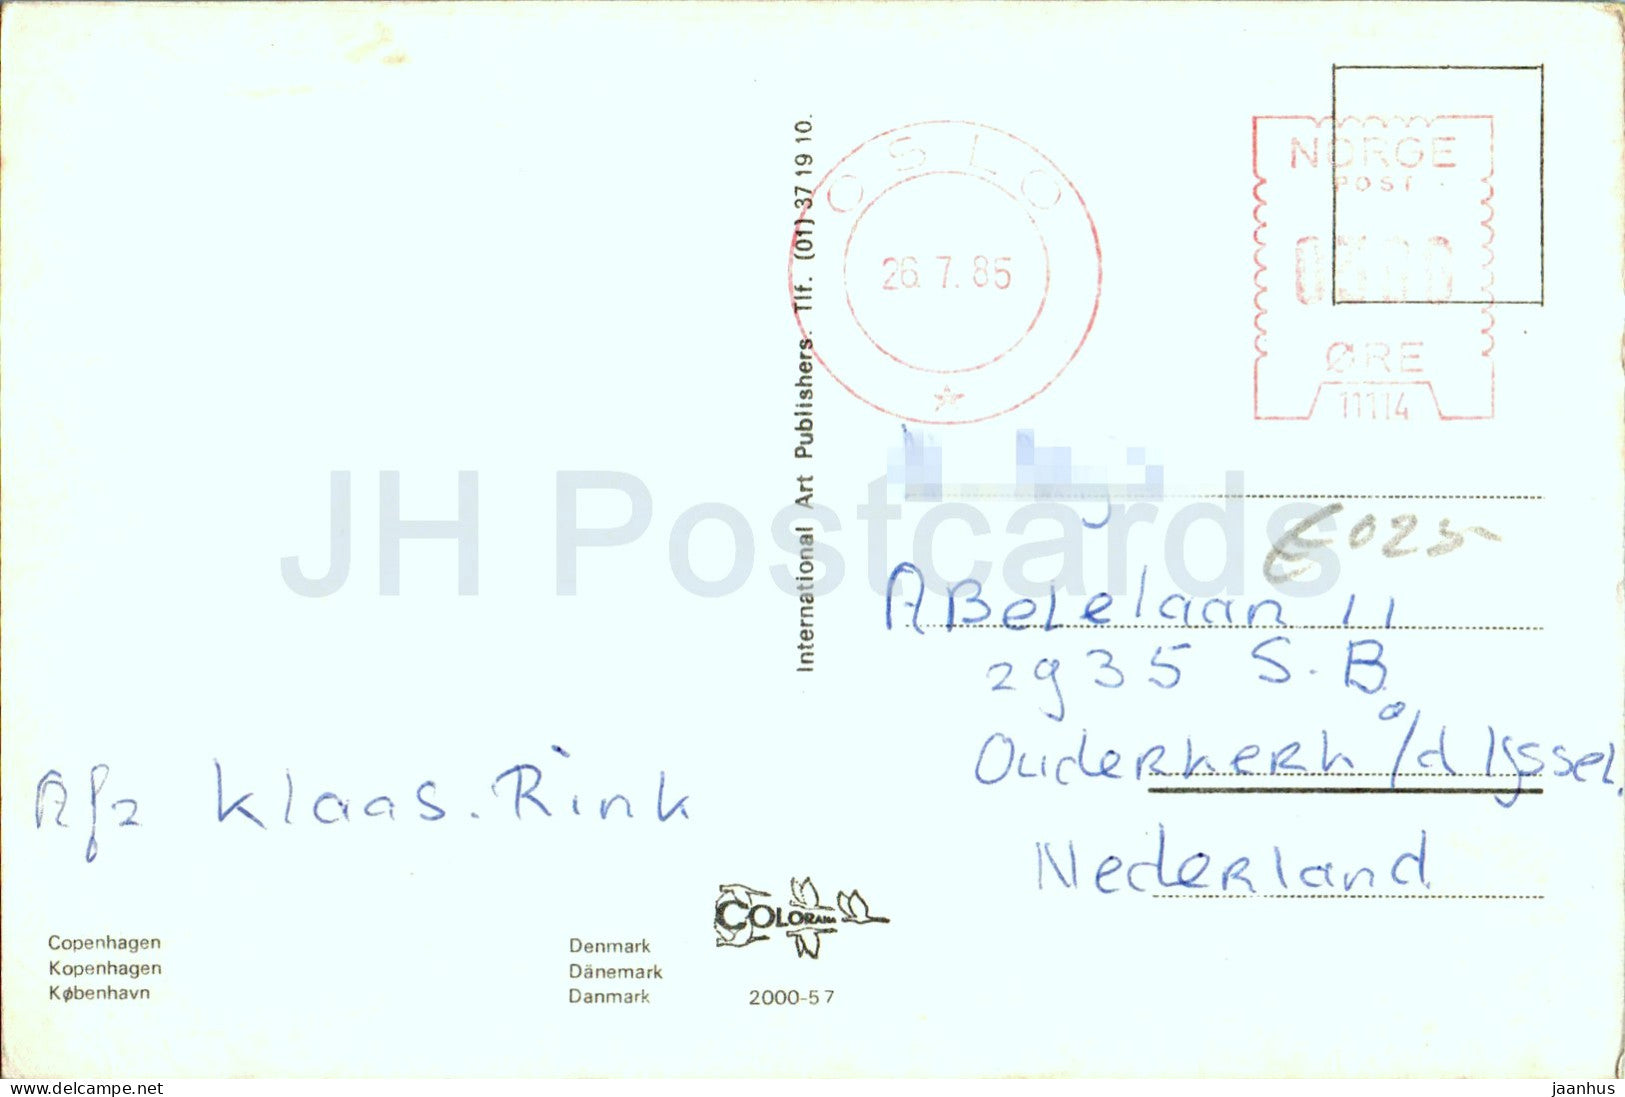 OSLO
26.7.85
NORGE
POST
0300
ØRE
11114
International Art Publishers. Tlf. (01) 37 19 10.
JH Postcards
ABeLeLaan 11
2935 S.B
Ouderkerk a/d IJssel.
Nederland
Afz Klaas.Rink
COLORAMA
Copenhagen
Kopenhagen
København
Denmark
Dänemark
Danmark
2000-57
www.delcampe.net
jaanhus